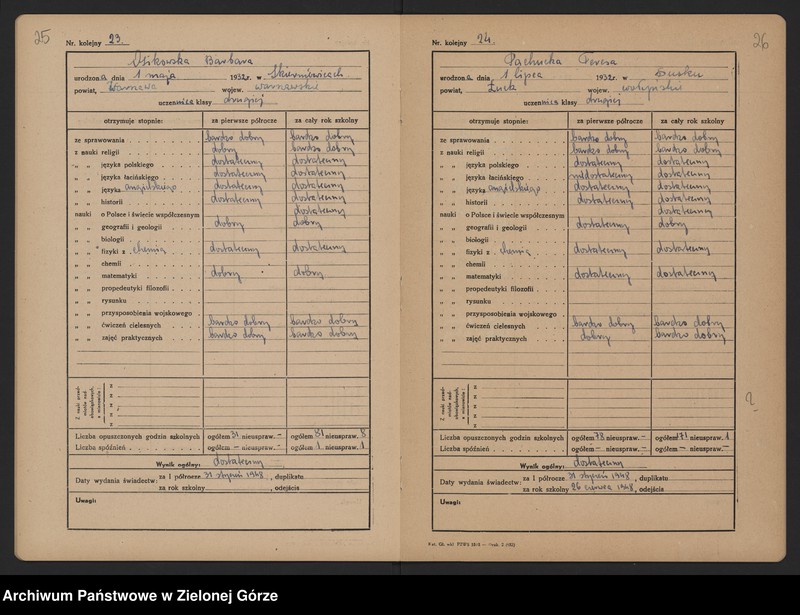 25
Nr. kolejny 23.
Barbara
urodzona dnia 1 maja 1932r. w Skierniewicach
powiat, wojew. warszawskie
uczennica klasy drugiej
otrzymuje stopnie: za pierwsze półrocze za cały rok szkolny
ze sprawowania bardzo dobry bardzo dobry
z nauki religii dobry bardzo dobry
„ „ języka polskiego dostateczny dostateczny
„ „ języka łacińskiego dostateczny dostateczny
„ „ języka angielskiego dostateczny dostateczny
„ „ historii dostateczny dostateczny
nauki o Polsce i świecie współczesnym dostateczny
„ „ geografii i geologii dobry dobry
„ „ biologii
„ „ fizyki z chemią dostateczny dostateczny
„ „ chemii
„ „ matematyki dobry dobry
„ „ propedeutyki filozofii
„ „ rysunku
„ „ przysposobienia wojskowego
„ „ ćwiczeń cielesnych bardzo dobry bardzo dobry
„ „ zajęć praktycznych bardzo dobry bardzo dobry
Z nauki przedmiotów nadobowiązkowych, a mianowicie:
z
z
z
z
Liczba opuszczonych godzin szkolnych ogółem 31 nieuspraw. – ogółem 81 nieuspraw. 8
Liczba spóźnień ogółem – nieuspraw. – ogółem 1 nieuspraw. 1
Wynik ogólny: dostateczny
Daty wydania świadectw: za I półrocze 31 styczeń 1948, duplikatu
za rok szkolny , odejścia
Uwagi:
26
Nr. kolejny 24.
Pachucka Teresa
urodzona dnia 1 lipca 1932r. w
powiat, Łuck wojew. wołyńskie
uczennica klasy drugiej
otrzymuje stopnie: za pierwsze półrocze za cały rok szkolny
ze sprawowania bardzo dobry bardzo dobry
z nauki religii bardzo dobry bardzo dobry
„ „ języka polskiego dostateczny dostateczny
„ „ języka łacińskiego niedostateczny dostateczny
„ „ języka angielskiego dostateczny dostateczny
„ „ historii dostateczny dostateczny
nauki o Polsce i świecie współczesnym dostateczny
„ „ geografii i geologii dostateczny dobry
„ „ biologii
„ „ fizyki z chemią dostateczny dostateczny
„ „ chemii
„ „ matematyki dostateczny dostateczny
„ „ propedeutyki filozofii
„ „ rysunku
„ „ przysposobienia wojskowego
„ „ ćwiczeń cielesnych bardzo dobry bardzo dobry
„ „ zajęć praktycznych dobry bardzo dobry
Z nauki przedmiotów nadobowiązkowych, a mianowicie:
z
z
z
z
Liczba opuszczonych godzin szkolnych ogółem 78 nieuspraw. – ogółem 171 nieuspraw. 1
Liczba spóźnień ogółem – nieuspraw. – ogółem – nieuspraw. –
Wynik ogólny: dostateczny
Daty wydania świadectw: za I półrocze 31 styczeń 1948, duplikatu
za rok szkolny 26 czerwca 1948, odejścia
Uwagi:
Archiwum Państwowe w Zielonej Górze